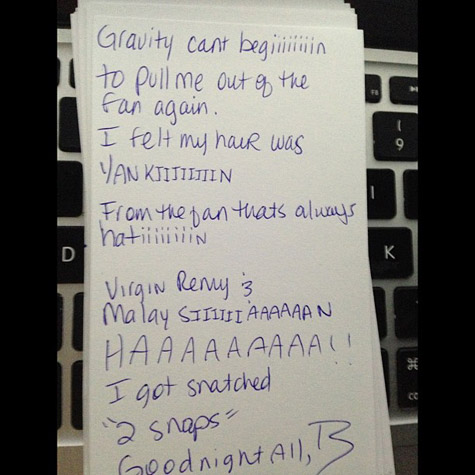 Gravity cant begiiiiiiiin
to pull me out of the
fan again.
I felt my hair was
YANKIIIIIIIN
From the fan thats always
hatiiiiiiiin
Virgin Remy &
Malay SIIIIIIAAAAAAN
HAAAAAAAAA!!
I got snatched
"2 snaps"
Goodnight All, B
D
K
I
(
9
F8
⌘